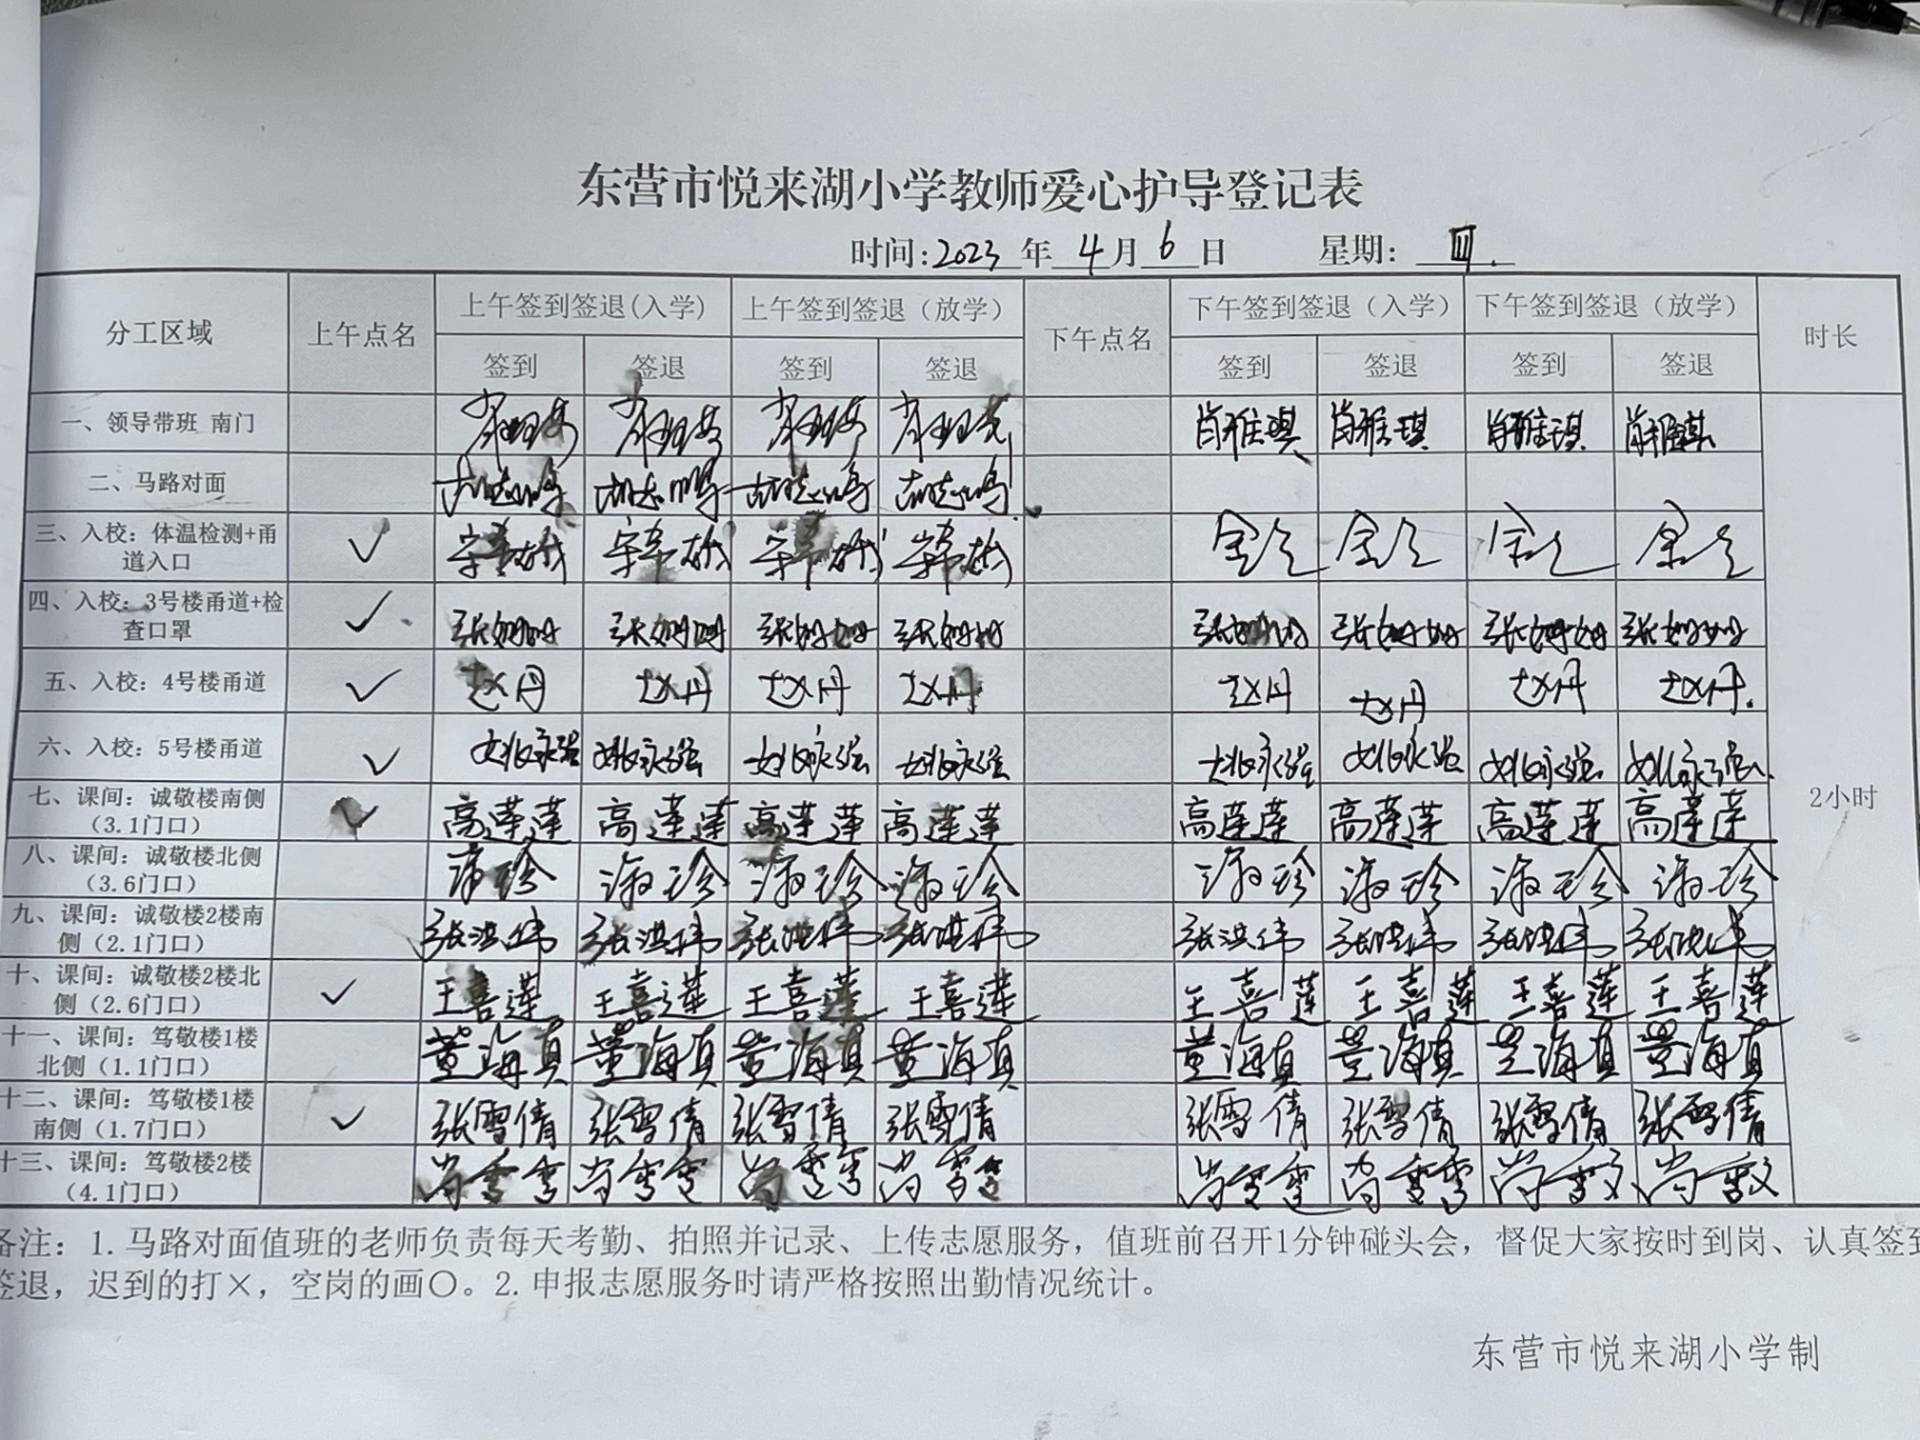 东营市悦来湖小学教师爱心护导登记表
时间:2023年4月6日 星期: 四.
分工区域 上午点名 上午签到签退(入学) 上午签到签退（放学） 下午点名 下午签到签退（入学） 下午签到签退（放学） 时长
签到 签退 签到 签退 签到 签退 签到 签退
一、领导带班 南门 肖雅琪 肖雅琪 肖雅琪 肖雅琪
二、马路对面
三、入校：体温检测+甬道入口 ✓
四、入校：3号楼甬道+检查口罩 ✓ 张姗姗 张姗姗 张姗姗 张姗姗 张姗姗 张姗姗 张姗姗 张姗姗
五、入校：4号楼甬道 ✓ 赵丹 赵丹 赵丹 赵丹 赵丹 赵丹 赵丹 赵丹.
六、入校：5号楼甬道 ✓ 姚永强 姚永强 姚永强 姚永强 姚永强 姚永强 姚永强 姚永强
七、课间：诚敬楼南侧（3.1门口） ✓ 高莲莲 高莲莲 高莲莲 高莲莲 高莲莲 高莲莲 高莲莲 高莲莲
八、课间：诚敬楼北侧（3.6门口）
九、课间：诚敬楼2楼南侧（2.1门口） 张洪伟 张洪伟 张洪伟 张洪伟 张洪伟 张洪伟 张洪伟 张洪伟
十、课间：诚敬楼2楼北侧（2.6门口） ✓ 王喜莲 王喜莲 王喜莲 王喜莲 王喜莲 王喜莲 王喜莲 王喜莲
十一、课间：笃敬楼1楼北侧（1.1门口） 董海真 董海真 董海真 董海真 董海真 董海真 董海真 董海真
十二、课间：笃敬楼1楼南侧（1.7门口） ✓ 张雪倩 张雪倩 张雪倩 张雪倩 张雪倩 张雪倩 张雪倩 张雪倩
十三、课间：笃敬楼2楼（4.1门口）
2小时
备注：1.马路对面值班的老师负责每天考勤、拍照并记录、上传志愿服务，值班前召开1分钟碰头会，督促大家按时到岗、认真签到
签退，迟到的打×，空岗的画〇。2.申报志愿服务时请严格按照出勤情况统计。
东营市悦来湖小学制